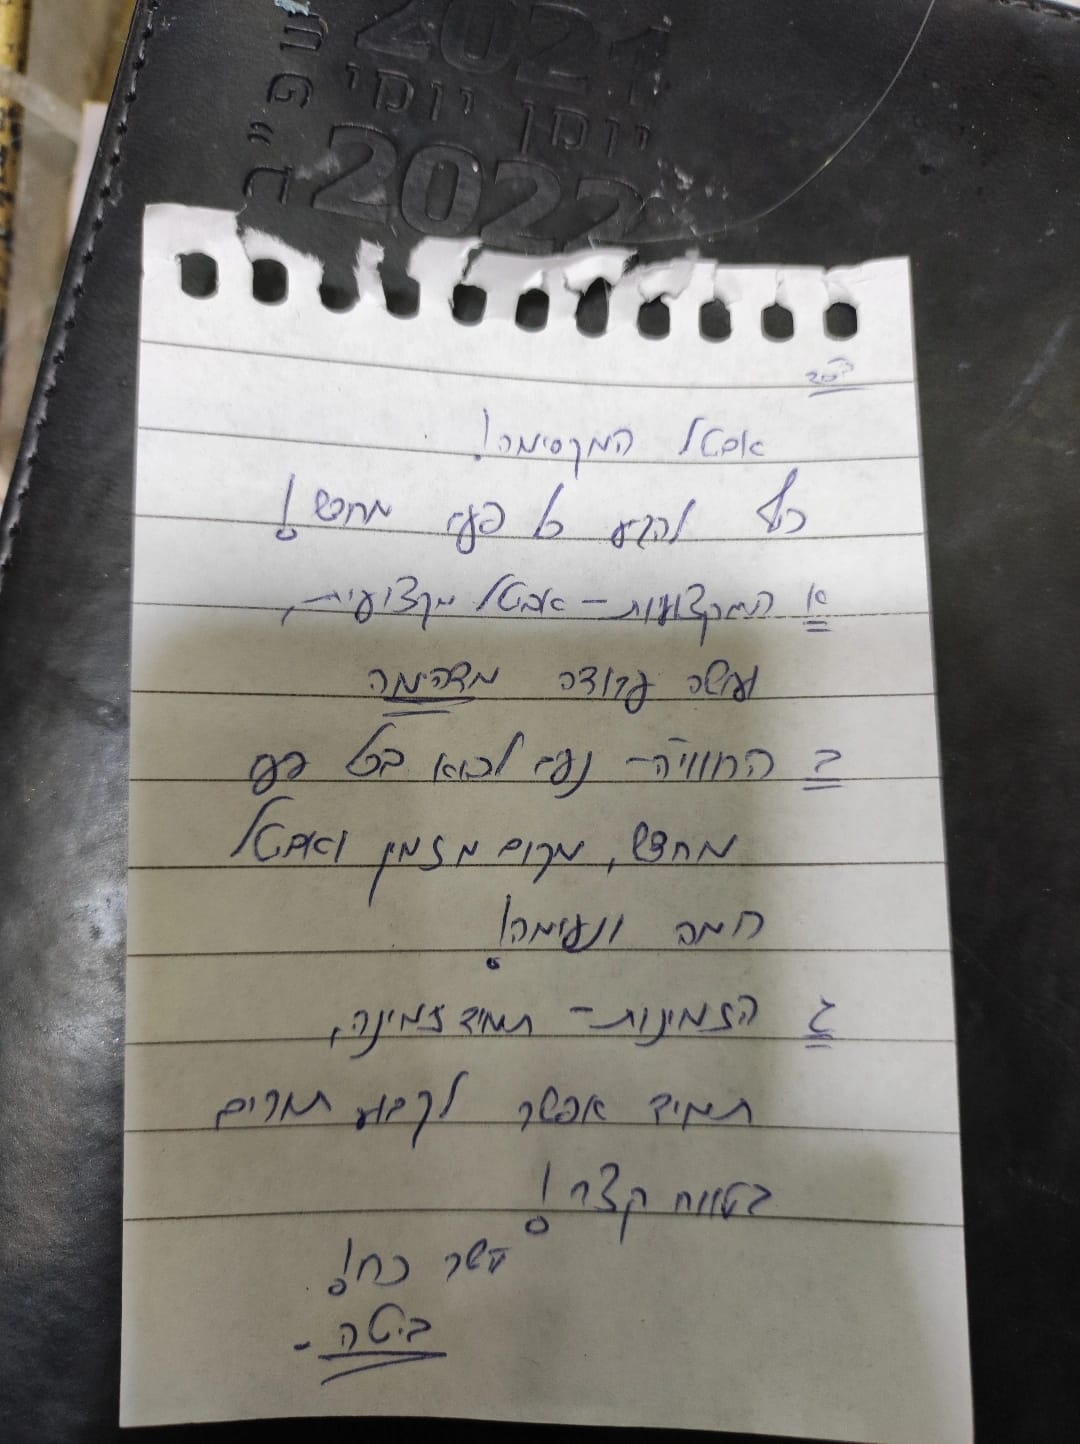 2021
יומן יומי
תשפ"ב
2022
בס"ד
אביטל המקסימה!
כיף להגיע כל פעם מחדש!
א המקצועיות - אביטל מקצועית,
ועושה עבודה מדהימה
ב החוויה - נעים לבוא בכל פעם
מחדש, מקום מזמין ואביטל
חמה ונעימה!
ג הזמינות - תמיד זמינה,
תמיד אפשר לקבוע תורים
בטווח קצר!
יישר כח!